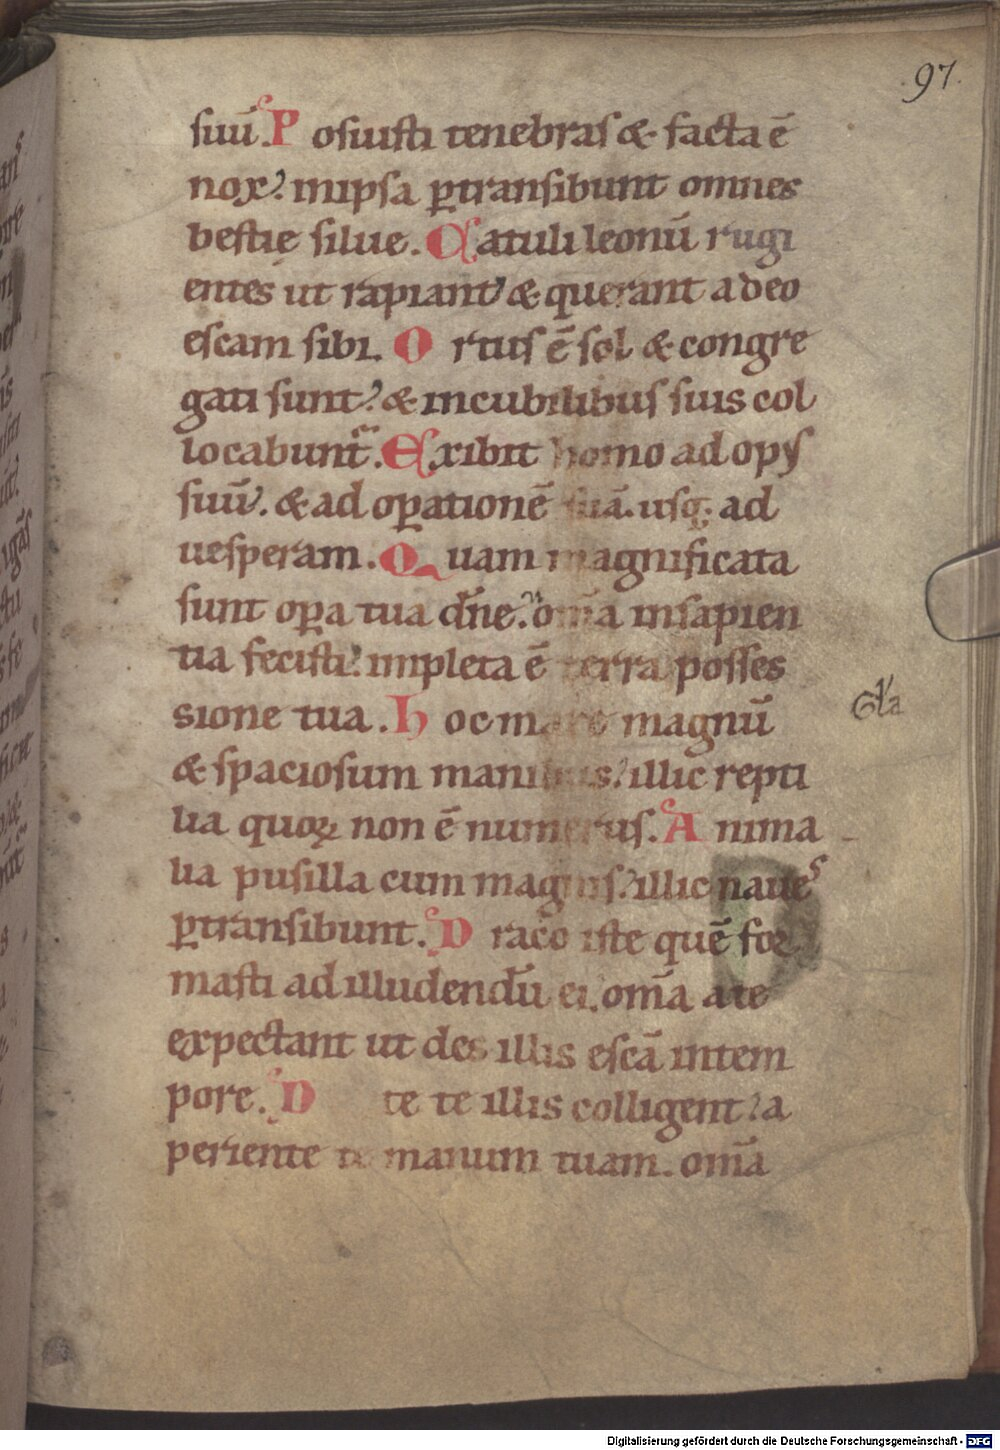 97.
suũ. Posuisti tenebras & facta ẽ
nox? inipsa ꝑtransibunt omnes
bestię silue. Catuli leonũ rugi
entes ut rapiant & querant adeo
escam sibi. Ortus ẽ sol & congre
gati sunt? & incubilibus suis col
locabunt᷑. Exibit homo ad opus
suũ. & ad oꝑationẽ suã. usq; ad
uesperam. Quam magnificata
sunt oꝑa tua dñe. om̃a insapien
tia fecisti? impleta ẽ terra posses
sione tua. Hoc mare magnũ
Gľa
& spaciosum manibus? illic repti
lia quoꝝ non ẽ numerus. Anima
lia pusilla cum magnis? illic naues
ꝑtransibunt. Draco iste quẽ for
masti ad illudendũ ei. om̃a ate
expectant ut des illis escã intem
pore. D te te illis colligent? a
periente te manum tuam. om̃a
Digitalisierung gefördert durch die Deutsche Forschungsgemeinschaft - DFG